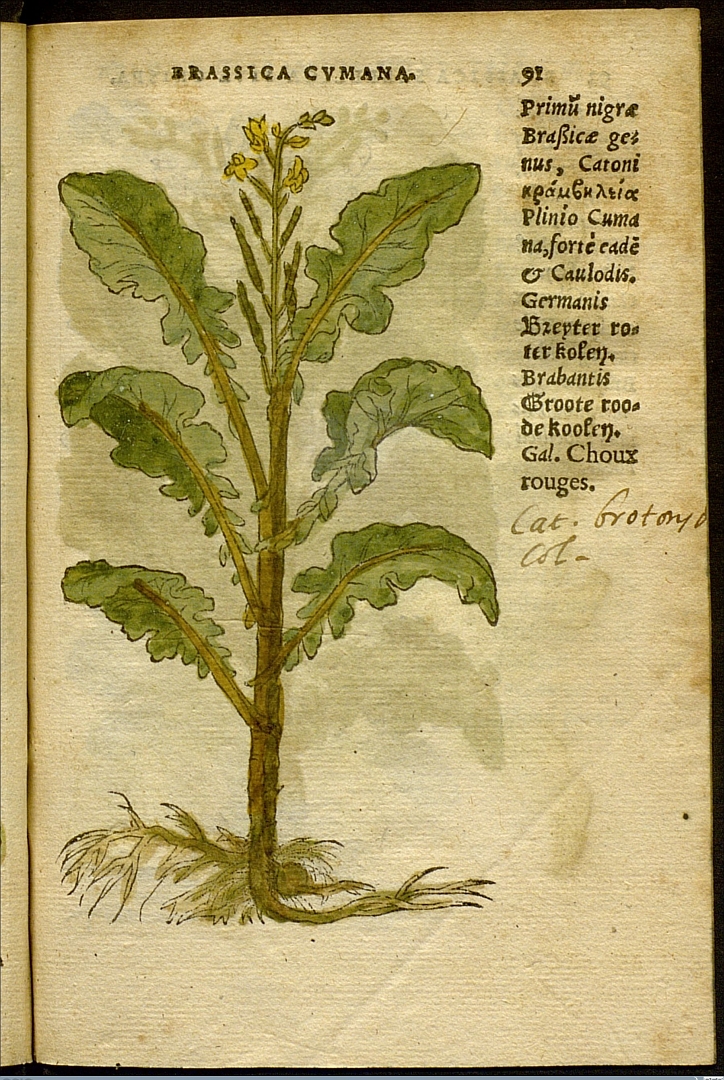 BRASSICA CVMANA. 91
Primū nigræ
Braßicæ ge⸗
nus, Catoni
κράμβη λεία
Plinio Cuma
na, fortè eadē
& Caulodis.
Germanis
Breyter ro⸗
ter kolen.
Brabantis
Groote roo⸗
de koolen.
Gal. Choux
rouges.
Cat.
Col-